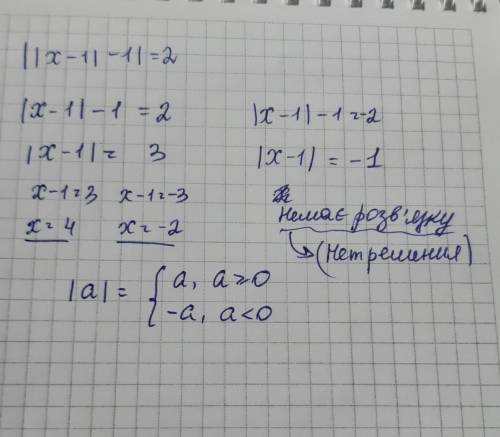 ||x-1|-1|=2
|x-1|-1=2
|x-1|= 3
x-1=3 x-1=-3
x=4 x=-2
|x-1|-1=-2
|x-1|=-1
Немає розв'язку
(Нет решения)
|a|= { a, a≥0
-a, a<0